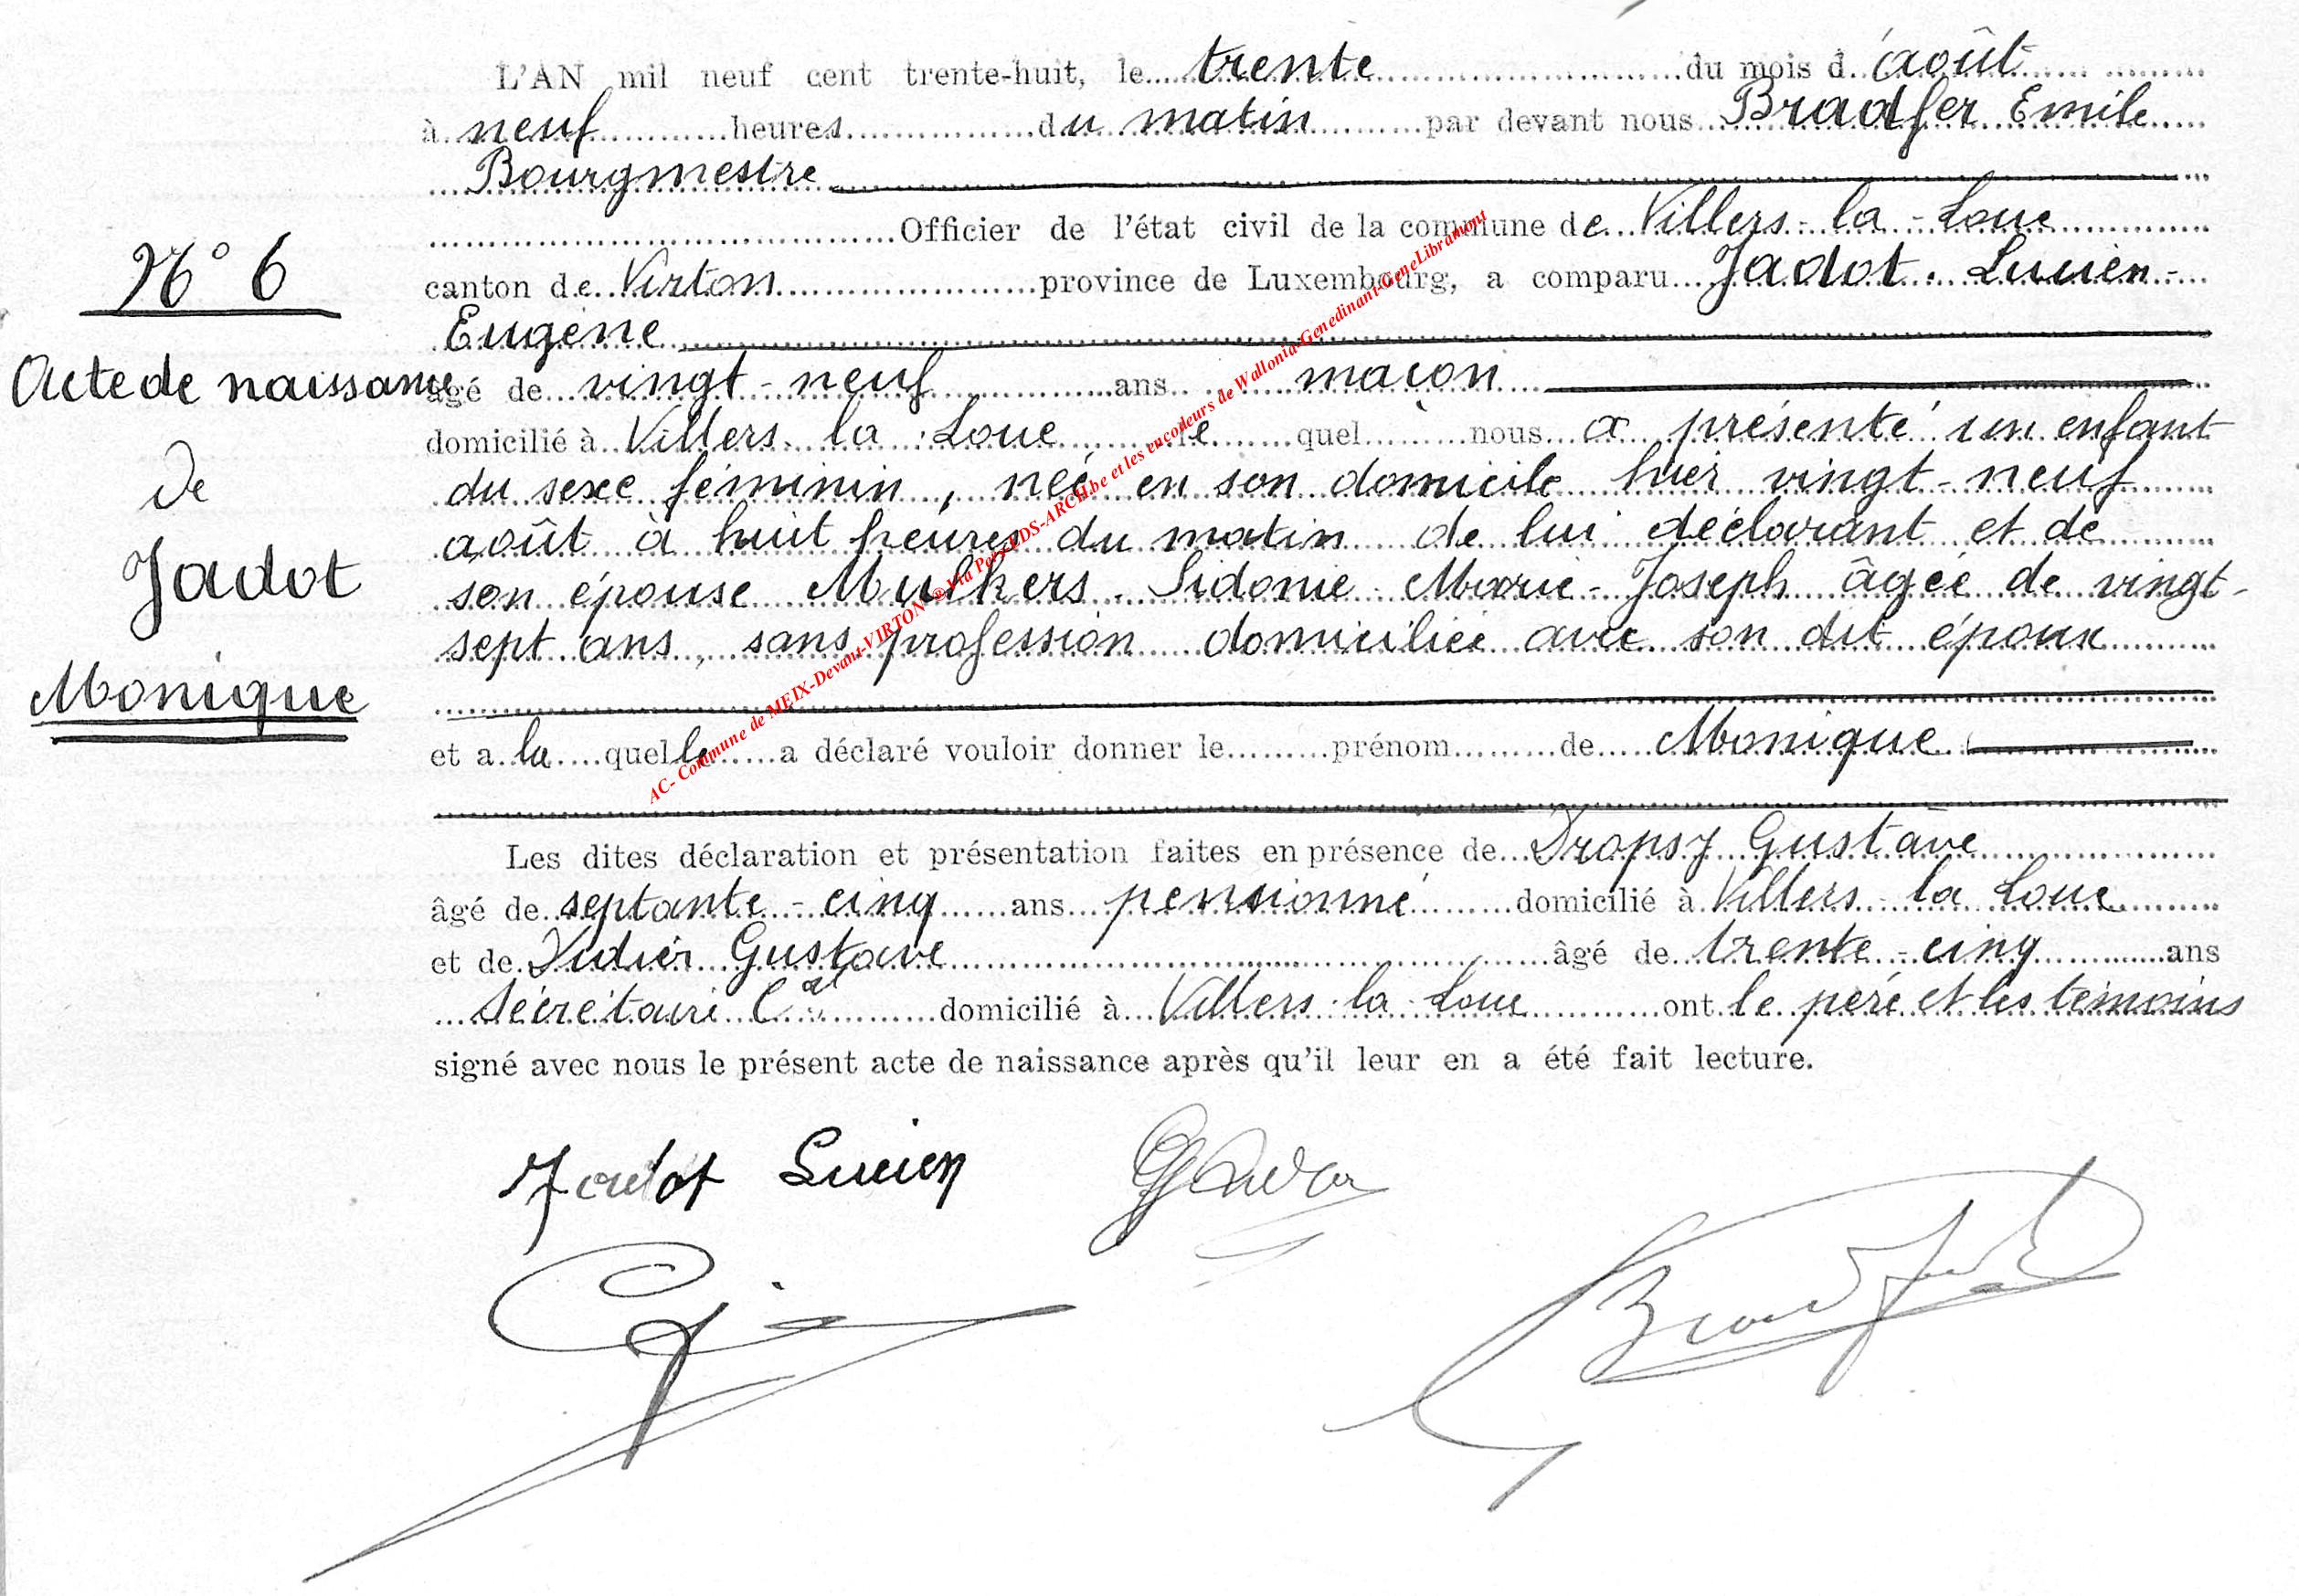 L'AN mil neuf cent trente-huit, le trente du mois d'août
à neuf heures du matin par devant nous Bradfer Emile
Bourgmestre
Officier de l'état civil de la commune de Villers-la-Loue
canton de Virton province de Luxembourg, a comparu Jadot. Lucien-
Eugène
âgé de vingt-neuf ans maçon
domicilié à Villers-la-Loue le quel nous a présenté un enfant
du sexe féminin, née en son domicile hier vingt-neuf
août à huit heures du matin de lui déclarant et de
son épouse Mulkers. Sidonie-Marie-Joseph âgée de vingt-
sept ans, sans profession domiciliée avec son dit époux
et a la quelle a déclaré vouloir donner le prénom de Monique
Les dites déclaration et présentation faites en présence de Dropsy Gustave
âgé de septante-cinq ans pensionné domicilié à Villers-la Loue
et de Didier Gustave âgé de trente-cinq ans
Secrétaire Cal domicilié à Villers-la-Loue ont le père et les témoins
signé avec nous le présent acte de naissance après qu'il leur en a été fait lecture.
N° 6
Acte de naissance
de
Jadot
Monique
Jadot Lucien
Bradfer
AC- Commune de MEIX-Devant-VIRTON @ Via Pers-LDS-ARCH.be et les encodeurs de Wallonia-Genedinant-GeneLibramont